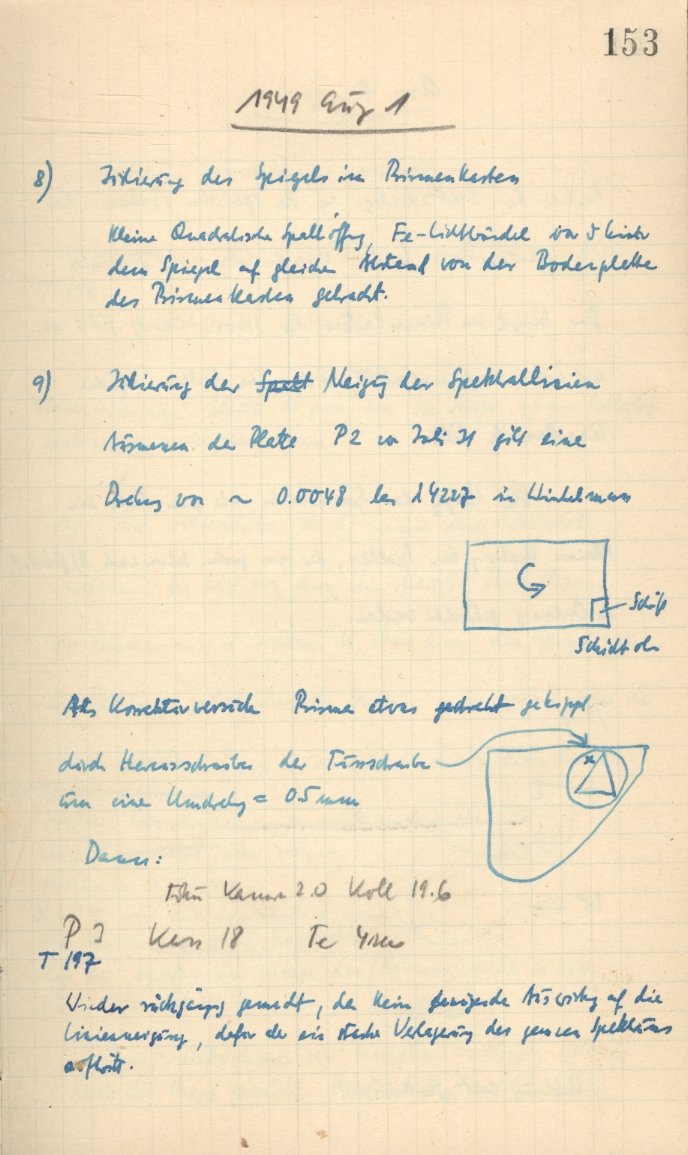 153
1949 Aug 1
8) Justierung des Spiegels im Prismenkasten
Kleine Quadratische Spaltöffng, Fe-Lichtbündel vor u hinter
dem Spiegel auf gleichen Abstand von der Bodenplatte
des Prismenkasten gebracht.
9) Justierung der Spalt Neigg der Spektrallinien
Ausmessen der Platte P2 von Juli 31 gibt eine
Drehg von ~ 0.0048 bei λ4227 in Winkelmass
Schrift
Schicht oben
Als Korrekturversuch Prisma etwas gedreht gekippt
durch Herausschrauben der Fussschraube
um eine Umdrehg = 0.5 mm
Dann:
2.0 Koll 19.6
P 3 Kass 18 Fe 4 sec
T 197
Wieder rückgängig gemacht, da kein genügende Auswirkg auf die
Linienneigung, dafür aber ein starke Verlagerung des ganzen Spektrums
auftritt.